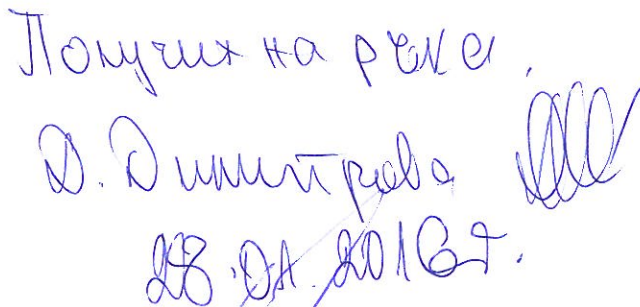 Получих на ръка.
Д. Димитрова
28.01.2016г.